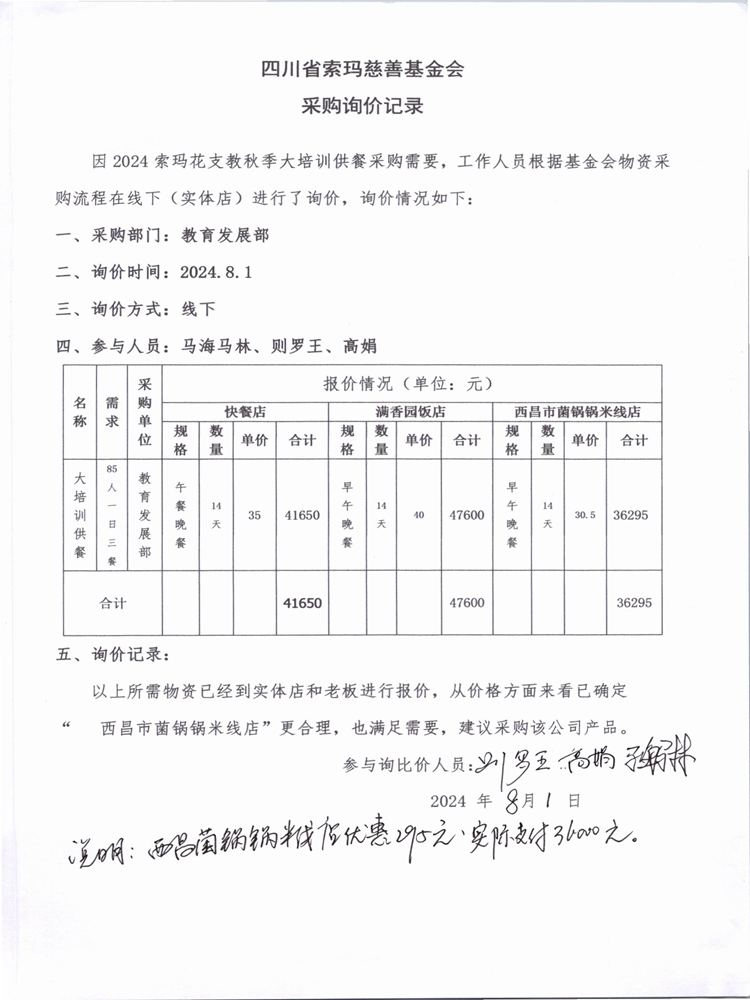 四川省索玛慈善基金会
采购询价记录
因 2024 索玛花支教秋季大培训供餐采购需要，工作人员根据基金会物资采
购流程在线下（实体店）进行了询价，询价情况如下：
一、采购部门：教育发展部
二、询价时间：2024.8.1
三、询价方式：线下
四、参与人员：马海马林、则罗王、高娟
名称 需求 采购单位 报价情况（单位：元）
快餐店 满香园饭店 西昌市菌锅锅米线店
规格 数量 单价 合计 规格 数量 单价 合计 规格 数量 单价 合计
大培训供餐 85人一日三餐 教育发展部 午餐晚餐 14天 35 41650 早午晚餐 14天 40 47600 早午晚餐 14天 30.5 36295
合计 41650 47600 36295
五、询价记录：
以上所需物资已经到实体店和老板进行报价，从价格方面来看已确定
“ 西昌市菌锅锅米线店”更合理，也满足需要，建议采购该公司产品。
参与询比价人员：则罗王 高娟
2024 年 8月 1 日
说明：西昌菌锅锅米线店优惠295元、实际支付36000元。